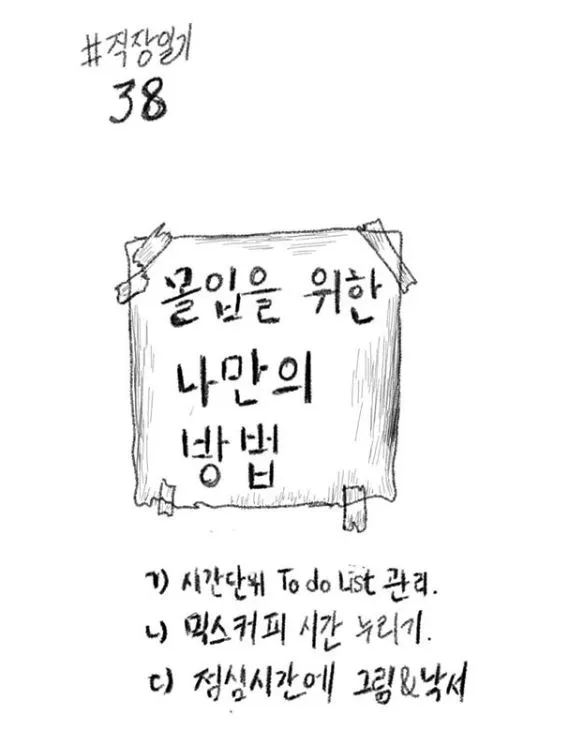 #직장일기
38
몰입을 위한
나만의
방법
ㄱ) 시간단위 To do List 관리.
ㄴ) 믹스커피 시간 누리기.
ㄷ) 점심시간에 그림&낙서